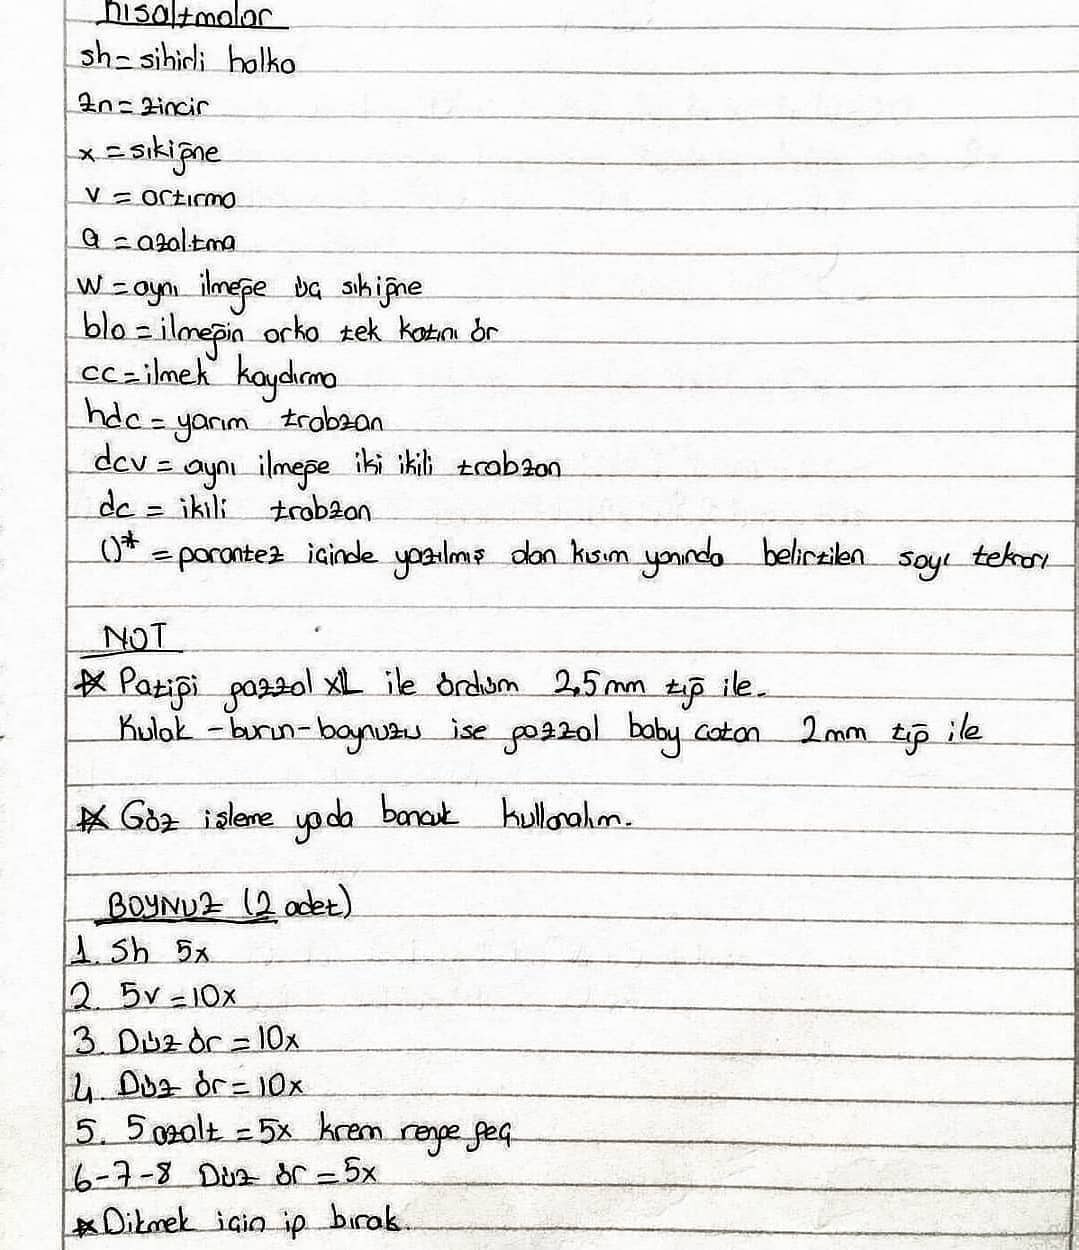 Kısaltmalar
sh = sihirli halka
zn = zincir
x = sıkiğne
v = artırma
a = azaltma
w = aynı ilmeğe üç sıkiğne
blo = ilmeğin arka tek katını ör
cc = ilmek kaydırma
hdc = yarım trabzan
dcv = aynı ilmeğe iki ikili trabzan
dc = ikili trabzan
()* = parantez içinde yazılmış olan kısım yanında belirtilen sayı tekrarı
NOT
* Patiği gazzal XL ile ördüm 2,5mm tığ ile.
Kulak - burun - boynuzu ise gazzal baby coton 2mm tığ ile
* Göz işleme yada boncuk kullanalım.
BOYNUZ (2 adet)
1. Sh 5x
2. 5v = 10x
3. Düz ör = 10x
4. Düz ör = 10x
5. 5 azalt = 5x krem renge geç
6-7-8 Düz ör = 5x
* Dikmek için ip bırak.